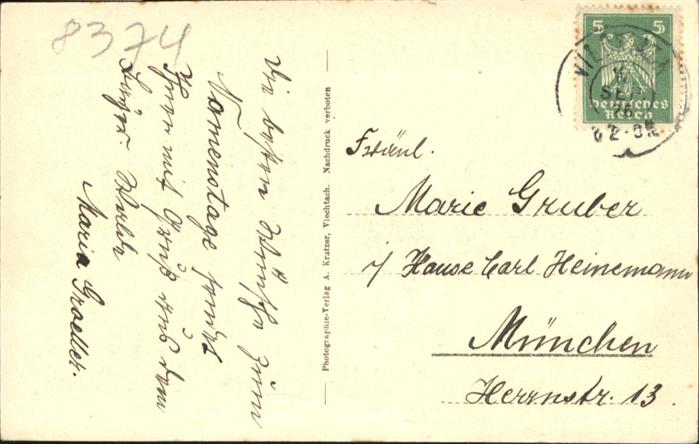 8374
Die besten Wünsche zum
Namenstage sendet
Ihnen mit Gruß aus dem
bayer. Walde
Maria
Photographie-Verlag A. Kratzer, Viechtach. Nachdruck verboten
5 5
Deutsches
Reich
SEP
Fräul.
Marie Gruber
i/ Hause Carl Heinemann
München
Herrnstr. 13.